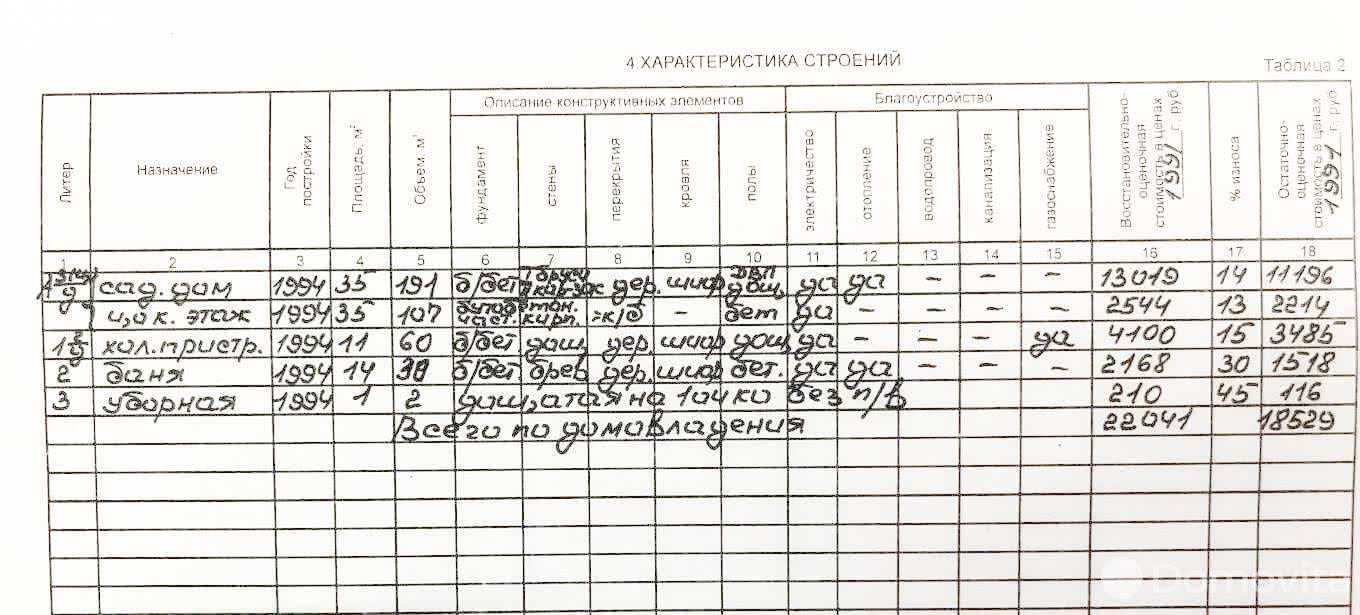 4.ХАРАКТЕРИСТИКА СТРОЕНИЙ
Таблица 2
Литер Назначение Год постройки Площадь, м² Объем, м³ Описание конструктивных элементов Благоустройство Восстановительно-оценочная стоимость в ценах 1991 г. руб % износа Остаточно-оценочная стоимость в ценах 1991 г. руб
фундамент стены перекрытия кровля полы электричество отопление водопровод канализация газоснабжение
1 2 3 4 5 6 7 8 9 10 11 12 13 14 15 16 17 18
сад. дом 1994 35 191 б/бет дер. шифр ДВП дощ. да да – – – 13019 14 11196
цок. этаж 1994 35 107 бутобетон. част. кирп. ж/б – бет да – – – – 2544 13 2214
1 хол. пристр. 1994 11 60 б/бет дощ. дер. шифр дощ да – – – да 4100 15 3485
2 баня 1994 14 б/бет брев дер. шифр бет. да да – – – 2168 30 1518
3 Уборная 1994 1 2 дощатая на 1 очко без п/в 210 45 116
Всего по домовладения 22041 18529
Domovita